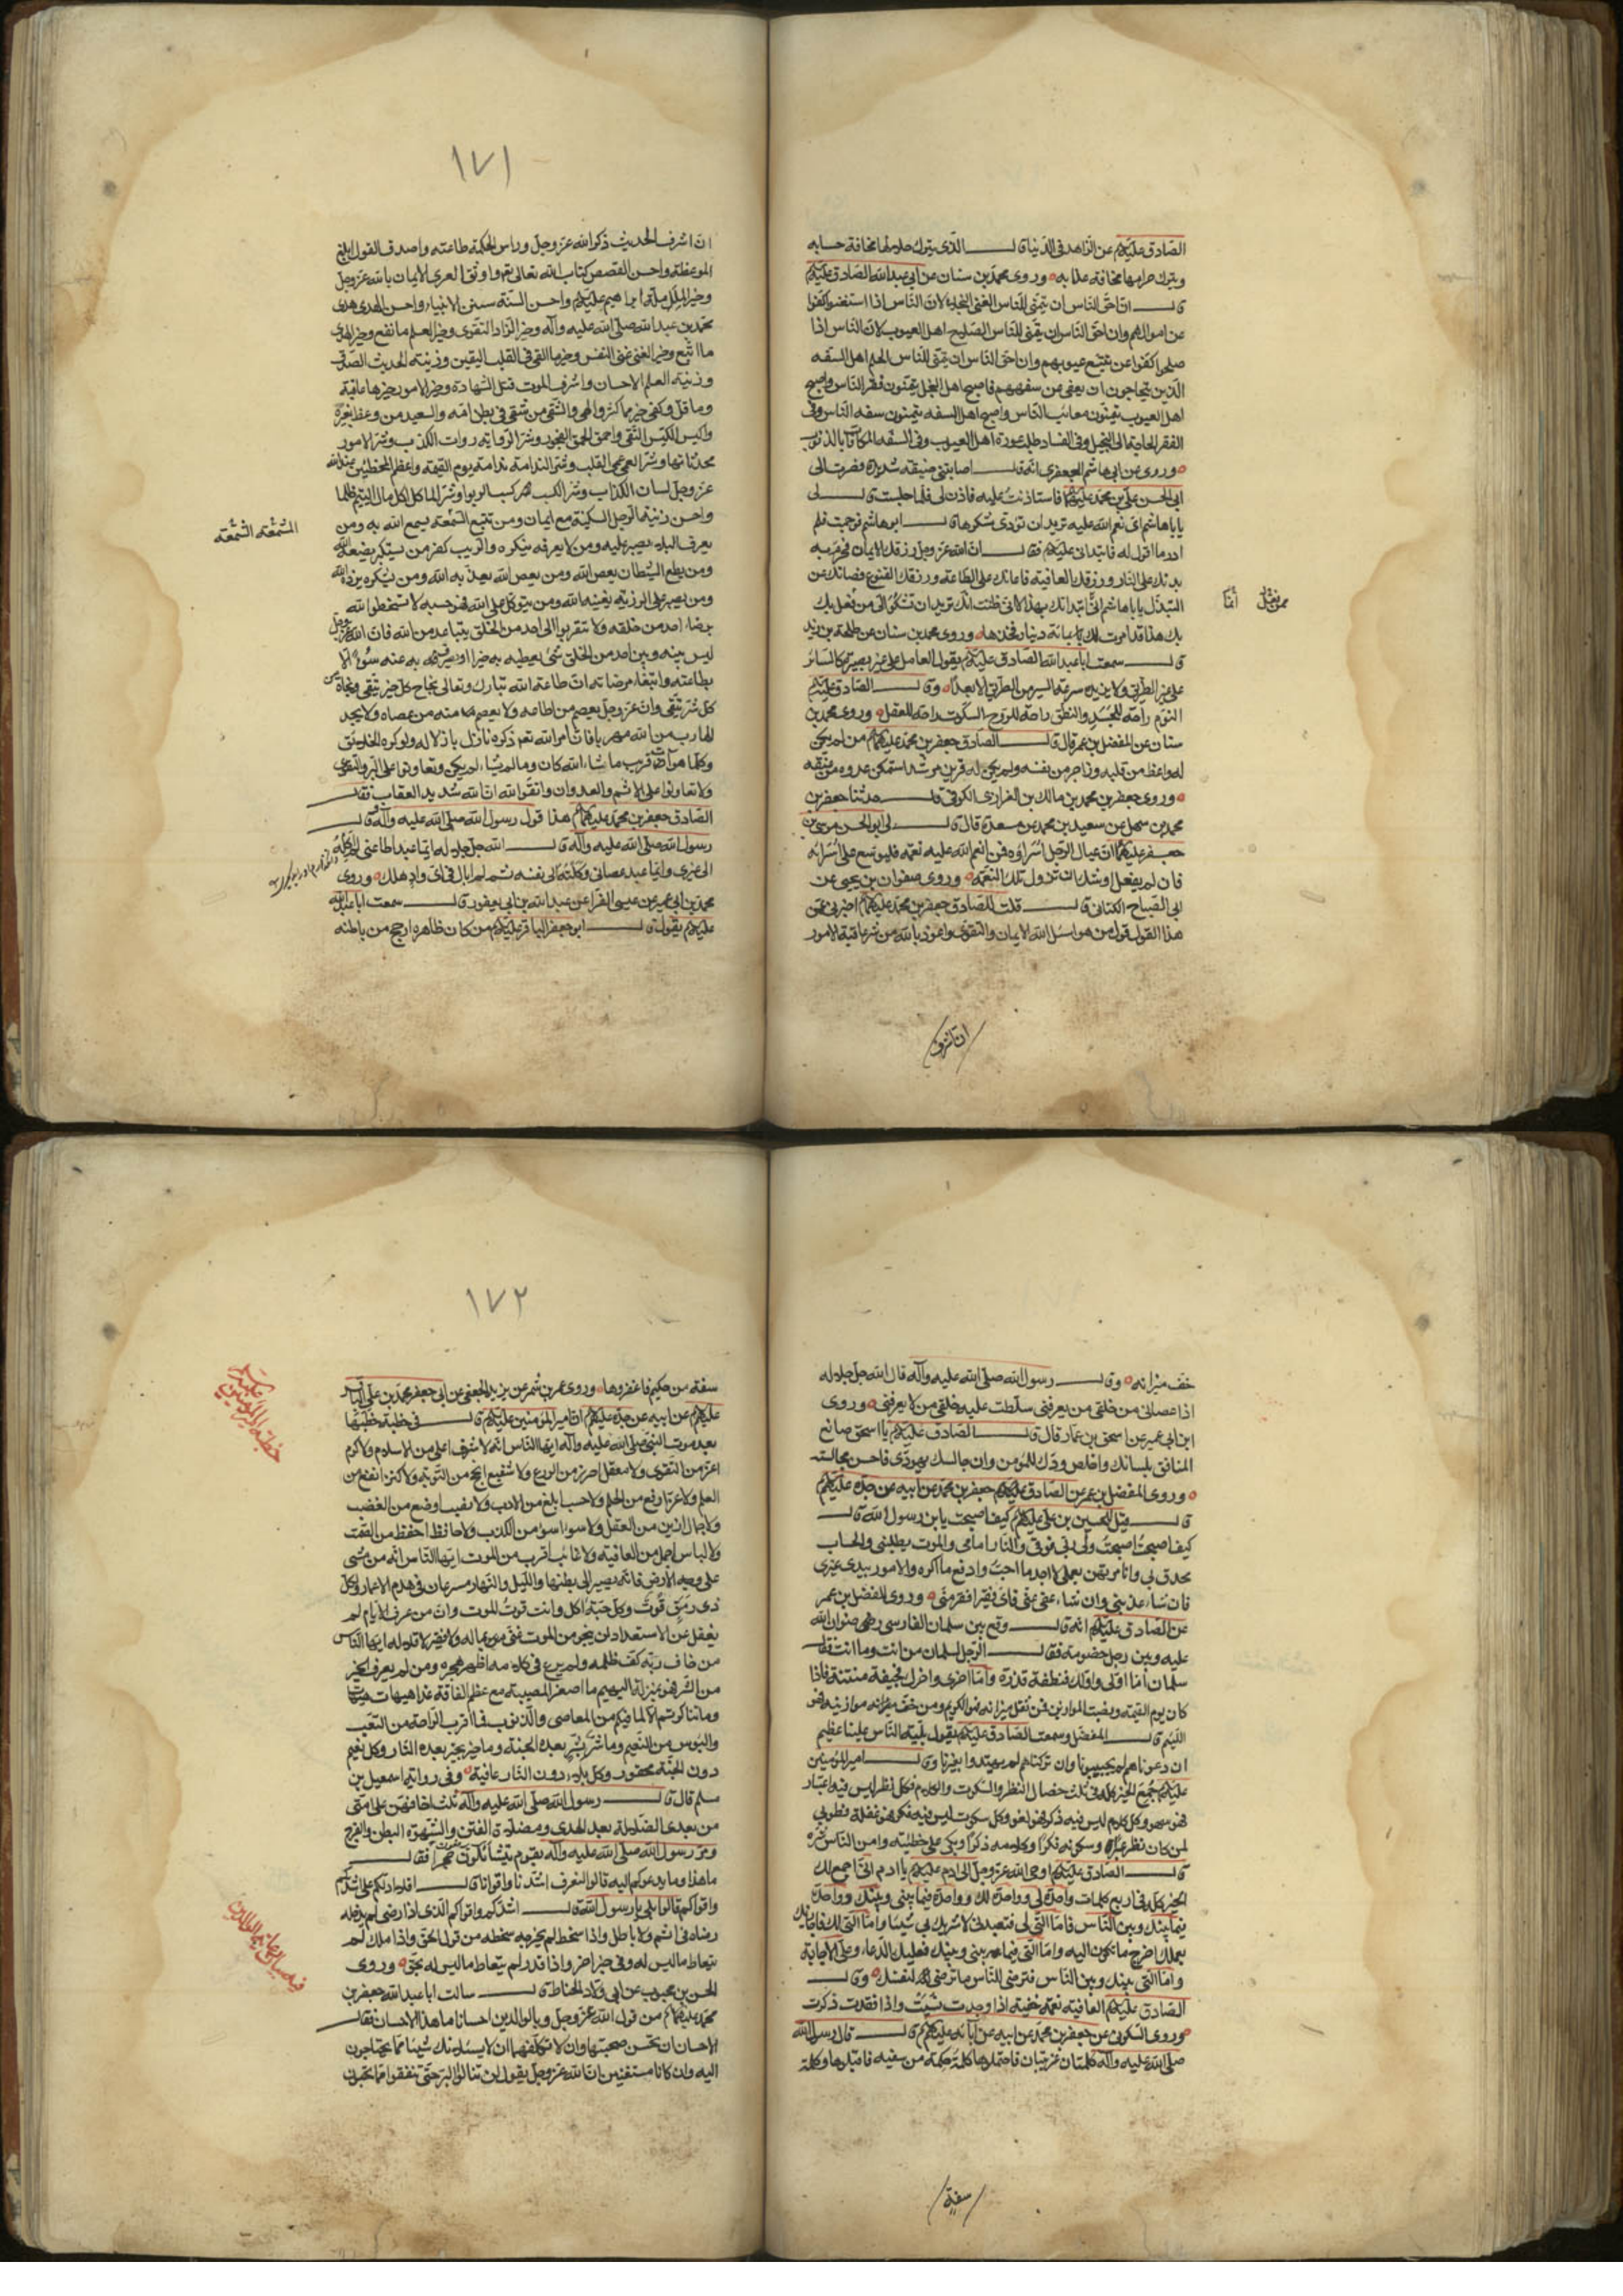 الصادق عليه السلم عن الزاهد فى الدنيا قال الذى يترك حلالها مخافة حسابه
ويترك حرامها مخافة عذابه وروى محمد بن سنان عن ابى عبدالله الصادق عليه السلم
قال ان احق الناس ان يتمنى للناس الغنى البخلاء لان الناس اذا استغنوا كفوا
عن اموالهم وان احق الناس ان يتمنى للناس الصلاح اهل العيوب لان الناس اذا
صلحوا كفوا عن تتبع عيوبهم وان احق الناس ان يتمنى للناس الحلم اهل السفه
الذين يحتاجون ان يعفى عن سفههم فاصبح اهل البخل يتمنون فقر الناس واصبح
اهل العيوب يتمنون معائب الناس واصبح اهل السفه يتمنون سفه الناس وفى
الفقر الحاجة الى البخيل وفى الفساد طلب عورة اهل العيوب وفى السفه المكافاة بالذنوب
وروى عن ابى هاشم الجعفرى انه قال اصابتنى ضيقة شديدة فصرت الى
ابى الحسن على بن محمد عليهما السلم فاستاذنت عليه فاذن لى فلما جلست قال لى
يا باهاشم اى نعم الله عليك تريد ان تودى شكرها قال ابو هاشم فوجمت فلم
ادر ما اقول له فابتدانى عليه السلم فقال ان الله عز وجل رزقك الايمان فحرم به
بدنك على النار ورزقك العافية فاعانك على الطاعة ورزقك القنوع فصانك عن
التبذل يا باهاشم انى ابتداتك بهذا لانى ظننت انك تريد ان تشكو الى من فعل بك
ممن فعل انما
بك هذا قد امرت لك بمائة دينار فخذها وروى محمد بن سنان عن طلحة بن زيد
قال سمعت ابا عبدالله الصادق عليه السلم يقول العامل على غير بصيرة كالسائر
على غير الطريق ولا يزيده سرعة السير من الطريق الا بعدا وقال الصادق عليه السلم
النوم راحة للجسد والنطق راحة للروح والسكوت راحة للعقل وروى محمد بن
سنان عن المفضل بن عمر قال قال الصادق جعفر بن محمد عليهما السلم من لم يكن
له واعظ من قلبه وزاجر من نفسه ولم يكن له قرين مرشد استمكن عدوه من عنقه
وروى جعفر بن محمد بن مالك بن الفزارى الكوفى قال حدثنا جعفر بن
محمد بن سهل عن سعيد بن محمد عن مسعدة قال قال لى ابو الحسن موسى بن
جعفر عليهما السلم ان عيال الرجل اسراؤه فمن انعم الله عليه نعمة فليوسع على اسرائه
فان لم يفعل اوشك ان تزول تلك النعمة وروى صفوان بن يحيى عن
ابى الصباح الكنانى قال قلت للصادق جعفر بن محمد عليهما السلم اخبرنى عن
هذا القول قول من هو اسئل الله الايمان والتقوى واعوذ بالله من شر عاقبة الامور
١٧١
ان اشرف الحديث ذكر الله عز وجل وراس الحكمة طاعته واصدق القول وابلغ
الموعظة واحسن القصص كتاب الله تعالى واوثق العرى الايمان بالله عز وجل
وخير الملل ملة ابراهيم عليه السلم واحسن السنة سنن الانبياء واحسن الهدى هدى
محمد بن عبدالله صلى الله عليه وآله وخير الزاد التقوى وخير العلم ما نفع وخير الهدى
ما اتبع وخير الغنى غنى النفس وخير ما القى فى القلب اليقين وزينة الحديث الصدق
وزينة العلم الاحسان واشرف الموت قتل الشهادة وخير الامور خيرها عاقبة
وما قل وكفى خير مما كثر والهى والشقى من شقى فى بطن امه والسعيد من وعظ بغيره
واكيس الكيس التقى واحمق الحمق الفجور وشر الرواية روايت الكذب وشر الامور
محدثاتها وشر العمى عمى القلب وشر الندامة ندامة يوم القيمة واعظم المخطئين عند الله
عز وجل لسان الكذاب وشر الكسب كسب الربوا وشر الماكل اكل مال اليتيم ظلما
واحسن زينة الرجل السكينة مع ايمان ومن تتبع السمعة يسمع الله به ومن
المشمعة الشمعة
يعرف البلاء يصبر عليه ومن لا يعرفه ينكره والريب كفر من يستكبر يضعه الله
ومن يطع الشيطان يعص الله ومن يعص الله يعذبه الله ومن يشكره يزده الله
ومن يصبر على الرزية يغيثه الله ومن يتوكل على الله فهو حسبه لا تسخطوا الله
برضاء احد من خلقه ولا تتقربوا الى احد من الخلق يتباعد من الله فان الله عز وجل
ليس بينه وبين احد من الخلق شئ يعطيه به خيرا او يصرف به عنه سوء الا
بطاعته وابتغاء مرضاته ان طاعة الله تبارك وتعالى نجاح كل خير يبتغى ونجاة من
كل شر يتقى وان الله عز وجل يعصم من اطاعه ولا يعصم منه من عصاه ولا يجد
الهارب من الله مهربا فان امر الله تعالى ذكره نازل باذلاله ولو كره الخلائق
وكلما هو آت قريب ما شاء الله كان وما لم يشا لم يكن وتعاونوا على البر والتقوى
ولا تعاونوا على الاثم والعدوان واتقوا الله ان الله شديد العقاب فقال
الصادق جعفر بن محمد عليهما السلم هذا قول رسول الله صلى الله عليه وآله وقال
رسول الله صلى الله عليه وآله قال الله جل جلاله ايما عبد اطاعنى لم اكله
الى غيرى وايما عبد عصانى وكلته الى نفسه ثم لم ابال فى اى واد هلك وروى
محمد بن ابى عمير عن عيسى الفرا عن عبدالله بن ابى يعفور قال سمعت ابا عبدالله
عليه السلم يقول قال ابو جعفر الباقر عليه السلم من كان ظاهره ارجح من باطنه
خف ميزانه وقال رسول الله صلى الله عليه وآله قال الله جل جلاله
اذا عصانى من خلقى من يعرفنى سلطت عليه خلقى من لا يعرفنى وروى
ابن ابى عمير عن اسحق بن عمار قال قال الصادق عليه السلم يا اسحق صانع
المنافق بلسانك واخلص ودك للمؤمن وان جالسك يهودى فاحسن مجالسته
وروى المفضل بن عمر عن الصادق جعفر بن محمد عن ابيه عن جده عليهم السلم
قال قيل للحسين بن على عليهما السلم كيف اصبحت يا بن رسول الله قال
كيف اصبحت اصبحت ولى رب فوقى والنار امامى والموت يطلبنى والحساب
محدق بى وانا مرتهن بعملى لا اجد ما احب ولا ادفع ما اكره والامور بيدى غيرى
فان شاء عذبنى وان شاء عفى عنى فاى فقير افقر منى وروى المفضل بن عمر
عن الصادق عليه السلم انه قال وقع بين سلمان الفارسى رضوان الله
عليه وبين رجل خصومة فقال الرجل لسلمان من انت وما انت فقال
سلمان اما اولى واولك فنطفة قذرة واما اخرى واخرك فجيفة منتنة فاذا
كان يوم القيمة ونصبت الموازين فمن ثقل ميزانه فهو الكريم ومن خف ميزانه فهو
اللئيم قال المفضل وسمعت الصادق عليه السلم يقول بلية الناس علينا عظيم
ان دعوناهم لم يجيبونا وان تركناهم لم يهتدوا بغيرنا وقال امير المؤمنين
عليه السلم جمع الخير كله فى ثلث خصال النظر والسكوت والكلام فكل نظر ليس فيه اعتبار
فهو سهو وكل كلام ليس فيه ذكر فهو لغو وكل سكوت ليس فيه فكر فهو غفلة فطوبى
لمن كان نظره عبرة وسكوته فكرا وكلامه ذكرا وبكى على خطيئته وامن الناس شره
قال الصادق عليه السلم اوحى الله عز وجل الى ادم عليه السلم يا ادم انى اجمع لك
الخير كله فى اربع كلمات واحدة لى وواحدة لك وواحدة فيما بينى وبينك وواحدة
فيما بينك وبين الناس فاما التى لى فتعبدنى لا تشرك بى شيئا واما التى لك فاجازيك
بعملك احوج ما تكون اليه واما التى فيما بينى وبينك فعليك الدعاء وعلى الاجابة
واما التى بينك وبين الناس فترضى للناس ما ترضى لنفسك وقال
الصادق عليه السلم العافية نعمة خفية اذا وجدت نسيت واذا فقدت ذكرت
وروى السكونى عن جعفر بن محمد عن ابيه عن آبائه عليهم السلم قال قال رسول الله
صلى الله عليه وآله كلمتان غريبتان فاحتملوها كلمة حكمة من سفيه فاقبلوها وكلمة
سفه
١٧٢
خطبة امير المؤمنين عليه السلم
سفه من حكيم فاغفروها وروى عمرو بن شمر عن جابر بن يزيد الجعفى عن ابى جعفر محمد بن على الباقر
عليه السلم عن ابيه عن جده عليهم السلم ان امير المؤمنين عليه السلم قال فى خطبة خطبها
بعد موت النبى صلى الله عليه وآله ايها الناس انه لا شرف اعلى من الاسلام ولا كرم
اعز من التقوى ولا معقل احرز من الورع ولا شفيع انجح من التوبة ولا كنز انفع من
العلم ولا عز ارفع من الحلم ولا حسب ابلغ من الادب ولا نصب اوضع من الغضب
ولا جمال ازين من العقل ولا سوءا اسوء من الكذب ولا حافظ احفظ من الصمت
ولا لباس اجمل من العافية ولا غائب اقرب من الموت ايها الناس انه من مشى
على وجه الارض فانه يصير الى بطنها والليل والنهار مسرعان فى هدم الاعمار ولكل
ذى رمق قوت ولكل حبة آكل وانت قوت الموت وان من عرف الايام لم
يغفل عن الاستعداد لن ينجو من الموت غنى بماله ولا فقير لاقلاله ايها الناس
من خاف ربه كف ظلمه ومن لم يرع فى كلامه اظهر هجره ومن لم يعرف الخير
من الشر فهو بمنزلة البهيم ما اصغر المصيبة مع عظم الفاقة غدا هيهات هيهات
وما تناكرتم الا لما فيكم من المعاصى والذنوب فما اقرب الراحة من التعب
والبؤس من النعيم وما شر بشر بعده الجنة وما خير بخير بعده النار وكل نعيم
دون الجنة محقور وكل بلاء دون النار عافية وفى رواية اسمعيل بن
مسلم قال قال رسول الله صلى الله عليه وآله ثلث اخافهن على امتى
من بعدى الضلالة بعد الهدى ومضلات الفتن والشهوة البطن والفرج
ومر رسول الله صلى الله عليه وآله بقوم يتشائلون حجرا فقال
ما هذا وما يدعوكم اليه قالوا لنعرف اشدنا واقوانا قال افلا ادلكم على اشدكم
واقواكم قالوا بلى يا رسول الله قال اشدكم واقواكم الذى اذا رضى لم يدخله
رضاه فى اثم ولا باطل واذا سخط لم يخرجه سخطه من قول الحق واذا ملك لم
يتعاط ما ليس له وفى خبر اخر واذا قدر لم يتعاط ما ليس له بحق وروى
الحسن بن محبوب عن ابى ولاد الحناط قال سالت ابا عبدالله جعفر بن
محمد عليهما السلم من قول الله عز وجل وبالوالدين احسانا ما هذا الاحسان فقال
الاحسان ان تحسن صحبتهما وان لا تكلفهما ان لا يسئلانك شيئا مما يحتاجون
اليه وان كانا مستغنيين ان الله عز وجل يقول لن تنالوا البر حتى تنفقوا مما تحبون